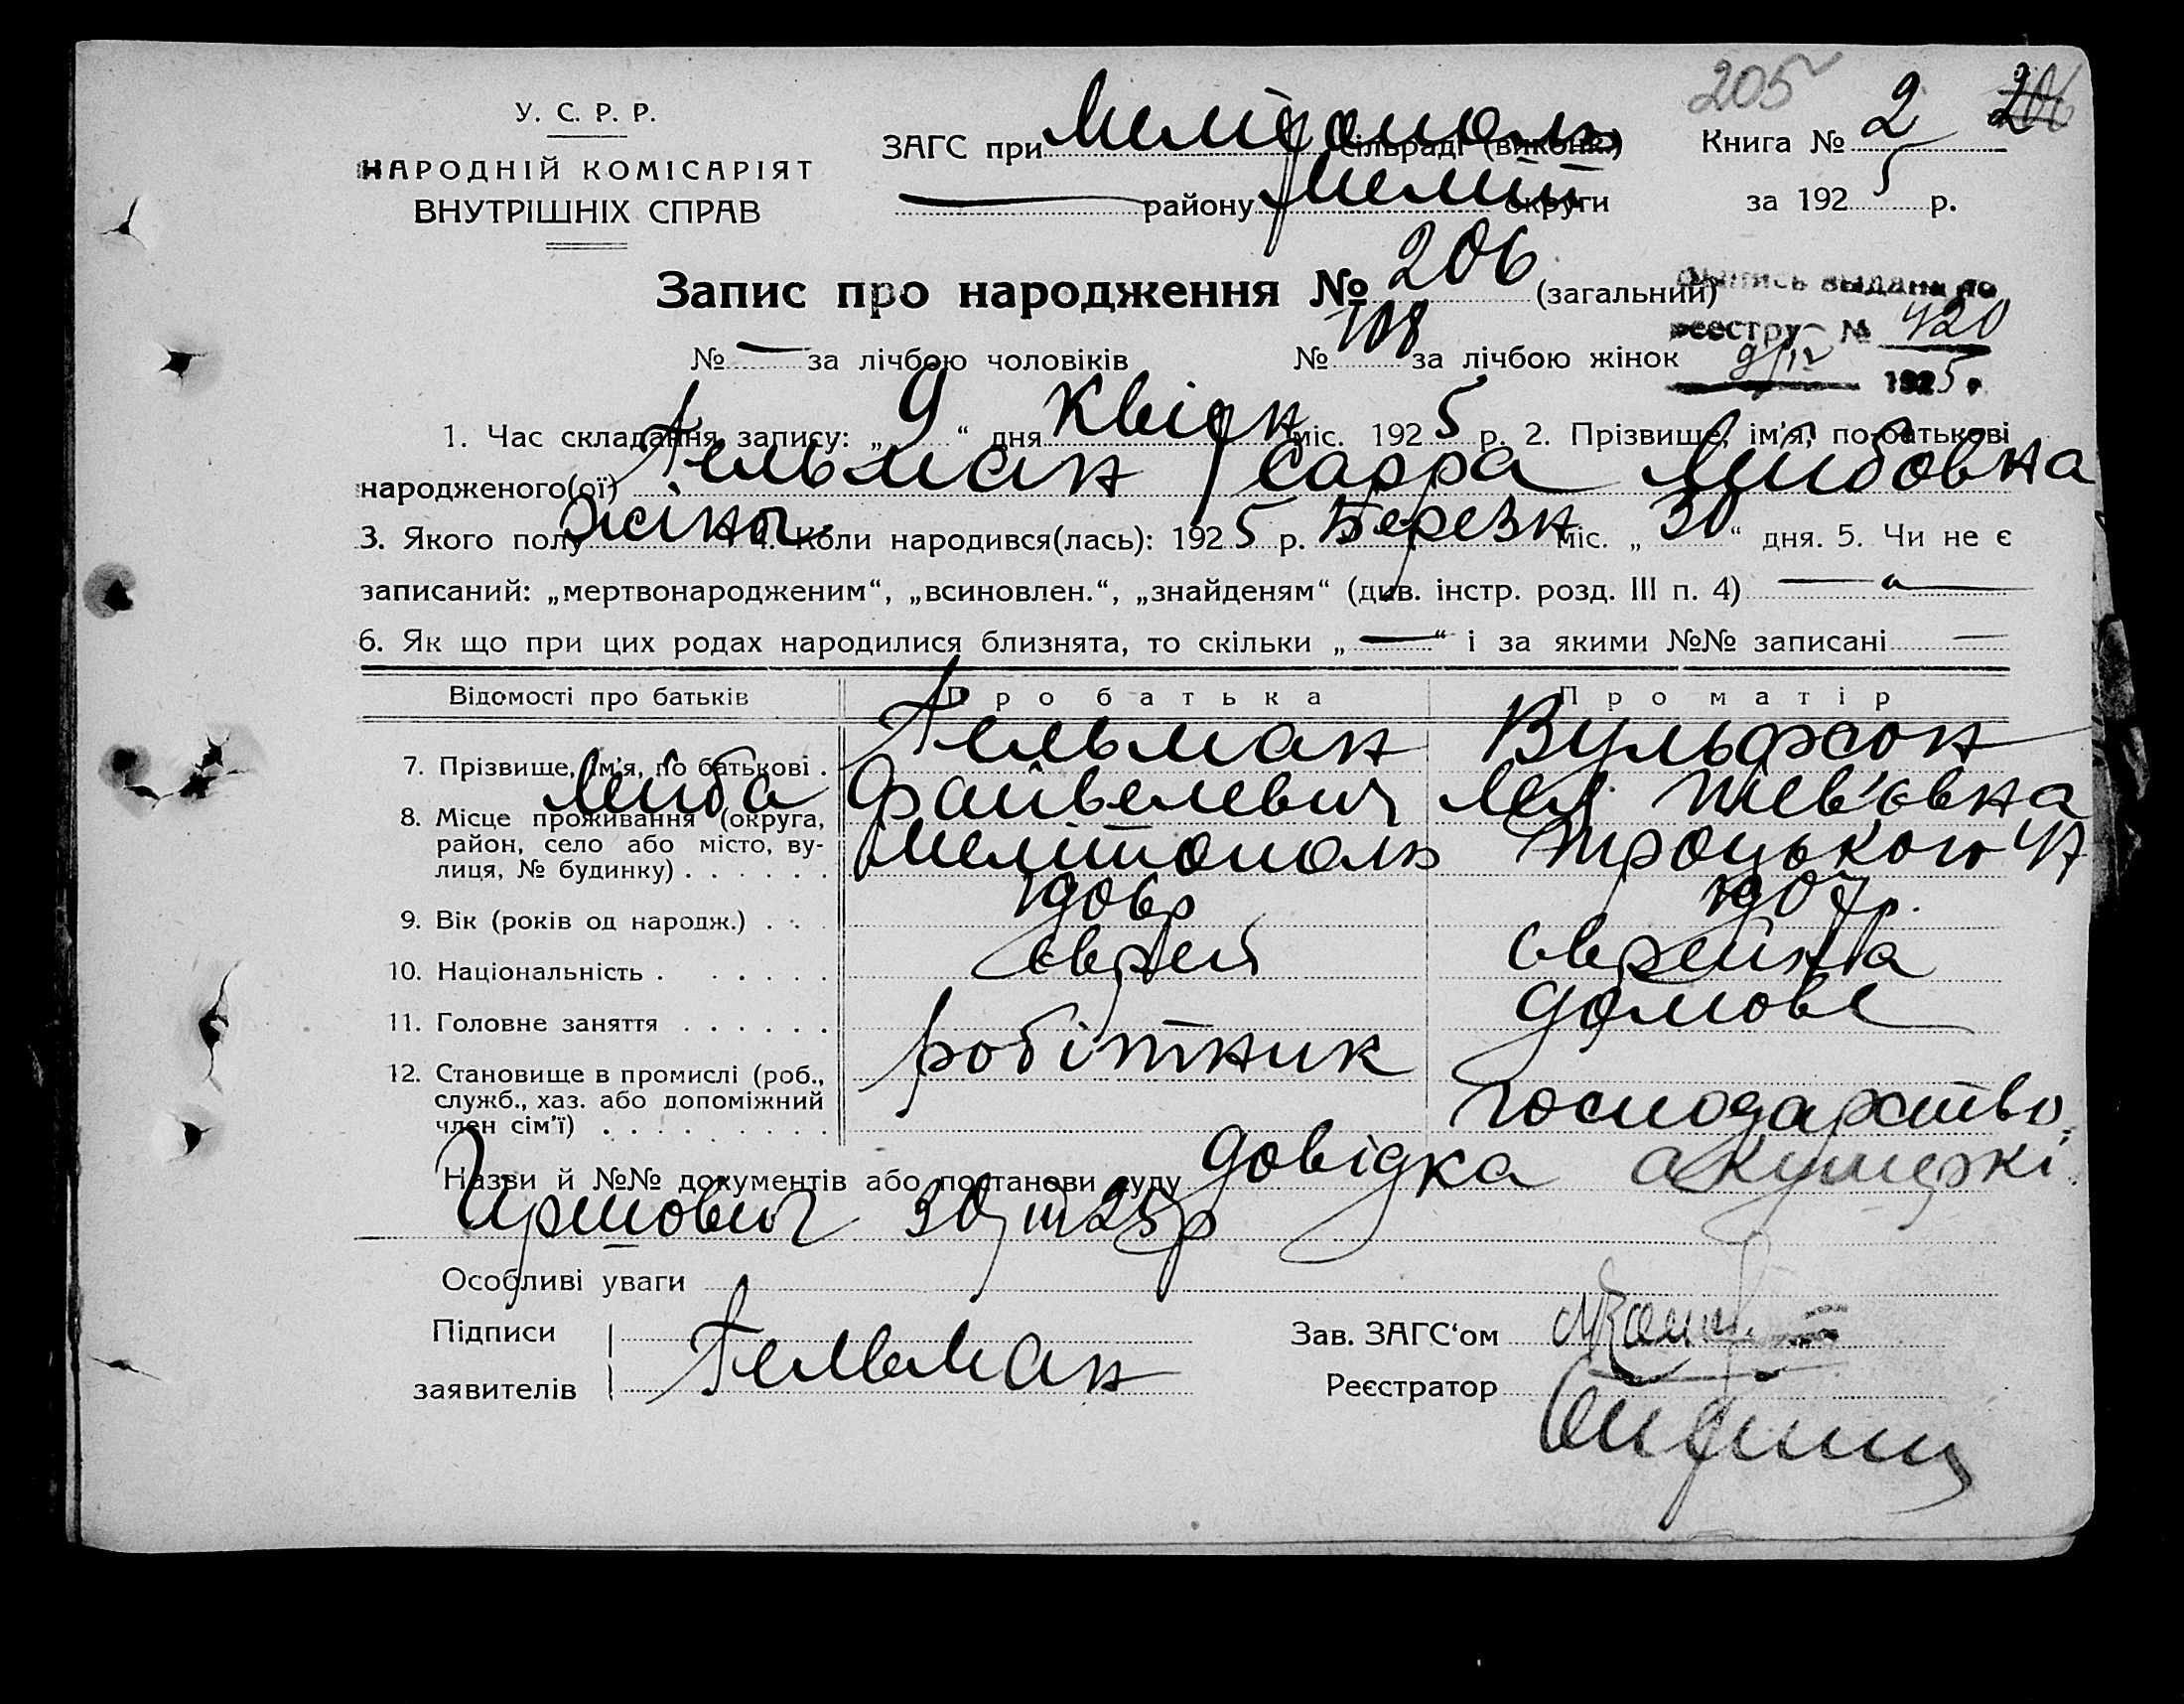 205
У. С. Р. Р.
НАРОДНІЙ КОМІСАРІЯТ
ВНУТРІШНІХ СПРАВ
ЗАГС при Мелітополь сільраді (виконк.)
району Меліт округи
Книга № 2
за 1925 р.
Запис про народження № 206 (загальний)
выдана по
реестру № 420
9/12 1925 г.
№ — за лічбою чоловіків № 108 за лічбою жінок
1. Час складання запису: „9“ дня Квітн міс. 1925 р. 2. Прізвище, ім'я, по-батькові
народженого(ої) Гельман Сарра Лейбовна
3. Якого полу жіноч. 4. Коли народився(лась): 1925 р. Березн міс. „30“ дня. 5. Чи не є
записаний: „мертвонародженим“, „всиновлен.“, „знайденям“ (див. інстр. розд. III п. 4) —
6. Як що при цих родах народилися близнята, то скільки „—“ і за якими №№ записані —
Відомості про батьків Про батька Про матір
7. Прізвище, ім'я, по батькові . Гельман Вульфсон
Лейба Файвелевич Лея
8. Місце проживання (округа,
район, село або місто, ву-
лиця, № будинку) . . . . . . Мелітополь Троцького 47
9. Вік (років од народж.) . . . 1906 р 1907 р.
10. Національність . . . . . . єврей єврейка
11. Головне заняття . . . . . . робітник домове
12. Становище в промислі (роб.,
служб., хаз. або допоміжний
член сім'ї) . . . . . . . . . господарство
Назви й №№ документів або постанови суду довідка акушеркі
Иршович 30/III 25 р
Особливі уваги
Підписи
заявителів Гельман
Зав. ЗАГС'ом
Реєстратор